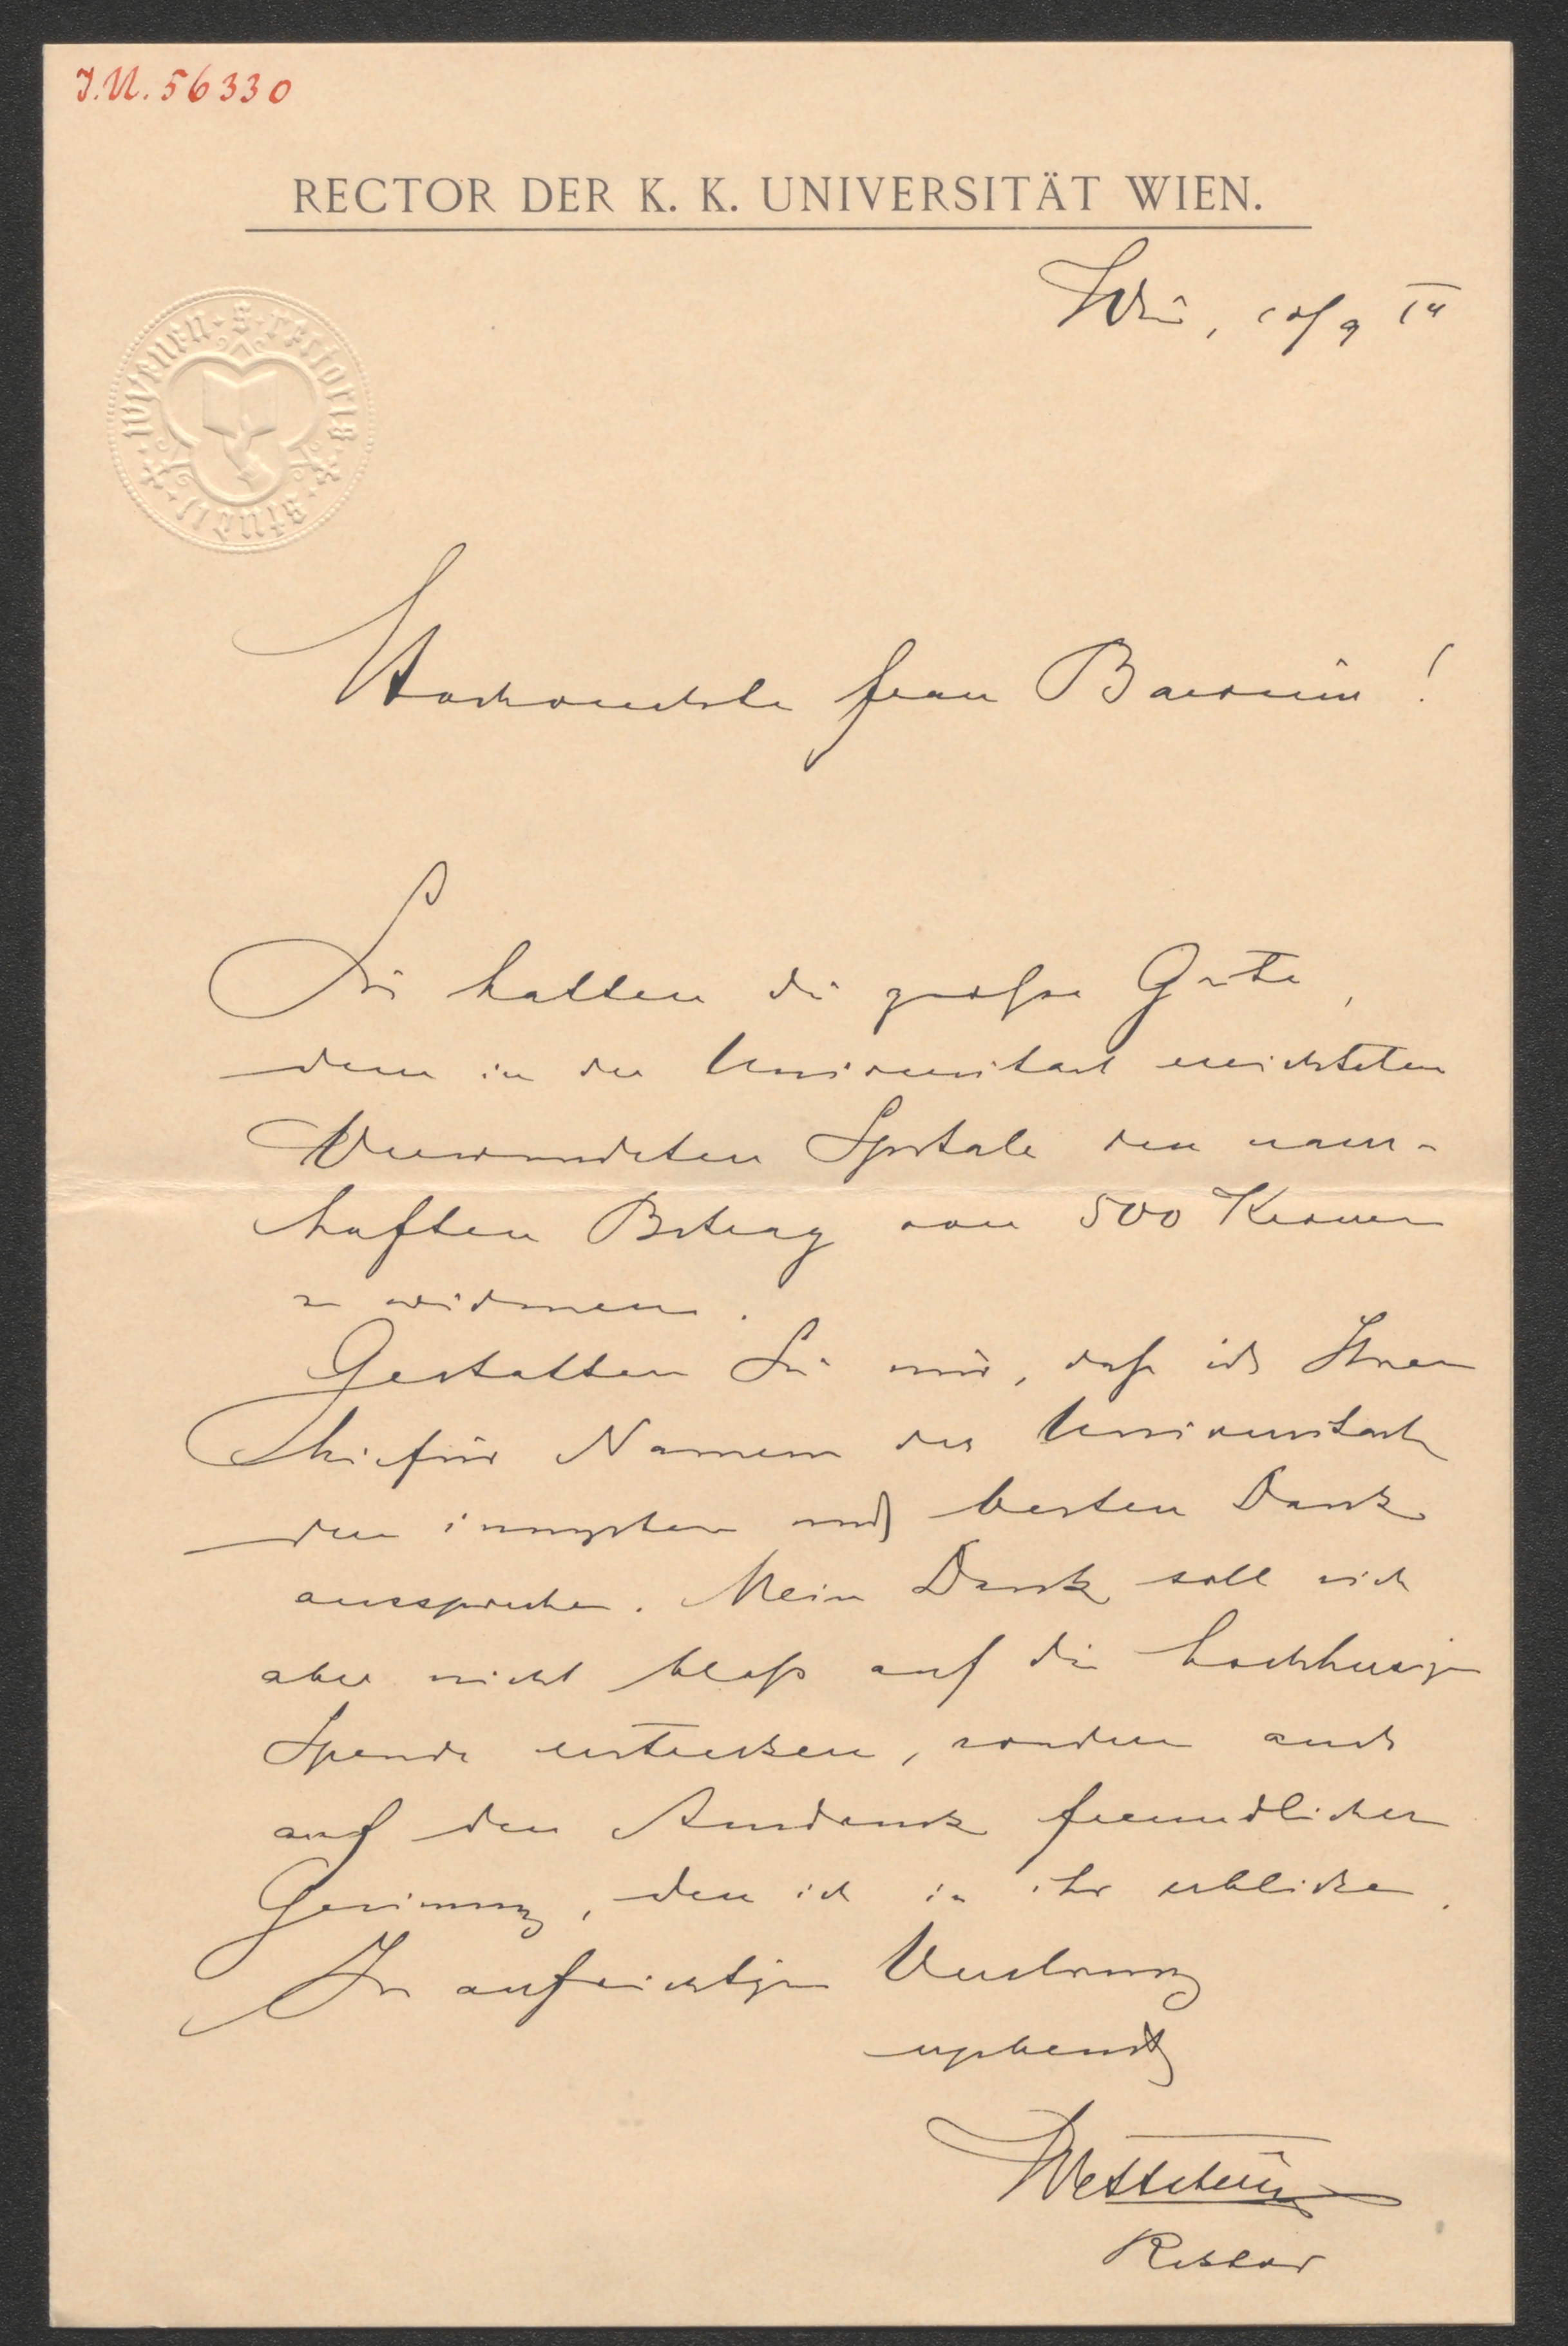 J.N. 56330
RECTOR DER K. K. UNIVERSITÄT WIEN.
Wien, 10/9 14
s. rectoris
studii
wienen
Hochverehrte Frau Baronin!
Sie hatten die große Güte,
dem in der Universität errichteten
Verwundeten Spitale den nam-
haften Betrag von 500 Kronen
zu widmen.
Gestatten Sie mir, daß ich Ihnen
hiefür Namens der Universität
den innigsten und besten Dank
ausspreche. Mein Dank soll sich
aber nicht bloß auf die hochherzige
Spende erstrecken, sondern auch
auf den Ausdruck freundlicher
Gesinnung, den ich in ihr erblicke.
In aufrichtiger Verehrung
ergebenst
Wettstein
Rektor